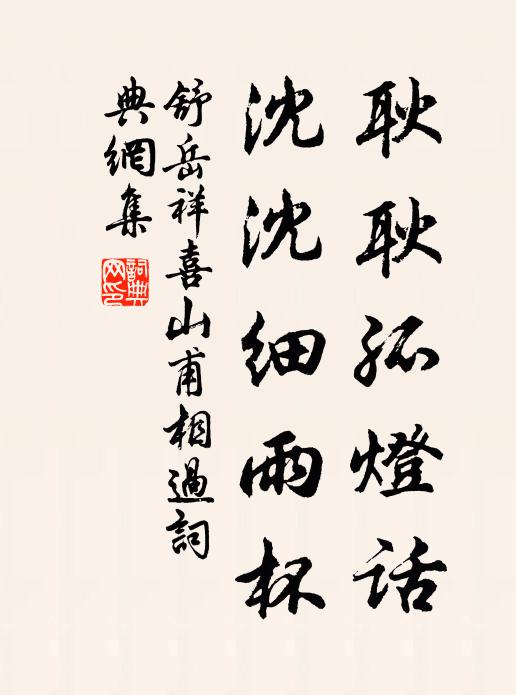 耿耿孤燈話
沈沈細雨杯
舒岳祥喜山甫相過詞
典網集
詞典网印